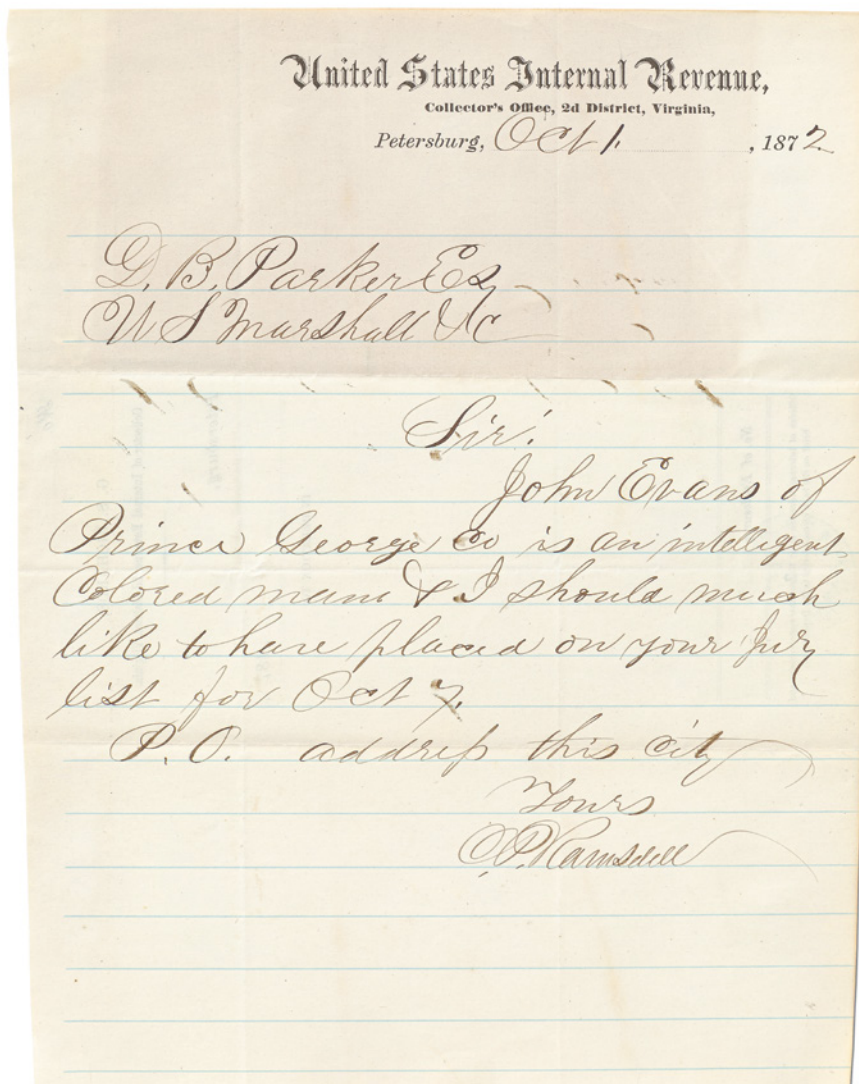 United States Internal Revenue,
Collector's Office, 2d District, Virginia,
Petersburg, Oct 1. , 1872
D. B. Parker Esq
U S Marshall &c
Sir!
John Evans of
Prince George Co is an intelligent
Colored man & I should much
like to have placed on your Jury
list for Oct 7.
P. O. address this city
Yours
O. P. Ramsdell